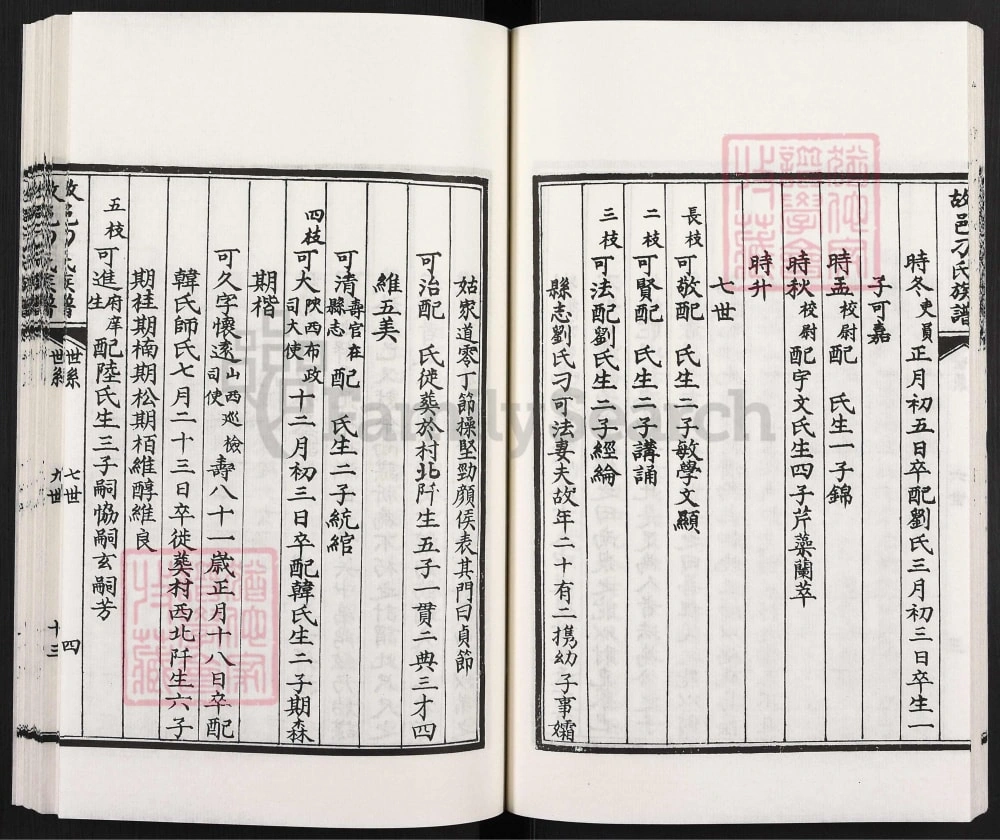 故邑刁氏族譜
時冬吏員正月初五日卒配劉氏三月初三日卒生一
子可嘉
時孟校尉配 氏生一子錦
時秋校尉配宇文氏生四子芹藻蘭萃
時升
七世
長枝可敬配 氏生二子敏學文顯
二枝可賢配 氏生二子講誦
三枝可法配劉氏生二子經綸
縣志劉氏刁可法妻夫故年二十有二携幼子事孀
姑家道零丁節操堅勁顏侯表其門曰貞節
可治配 氏徙葬於村北阡生五子一貫二典三才四
維五美
可清壽官在縣志配 氏生二子統綰
四枝可大陝西布政司大使十二月初三日卒配韓氏生二子期森
期楷
可久字懷遂山西巡檢司使壽八十一歲正月十八日卒配
韓氏師氏七月二十三日卒徙葬村西北阡生六子
期桂期楠期松期栢維醇維良
五枝可進府庠生配陸氏生三子嗣恊嗣玄嗣芳
世系 七世 四
世系 九世 十三
FamilySearch